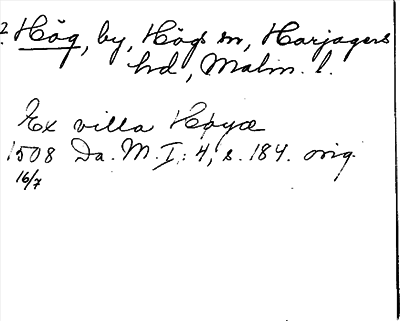 ? Hög, by, Högs sn, Harjagers
hd, Malm. l.
Ex villa Høyæ
1508 Da. M. I: 4, s. 184. orig.
16/7